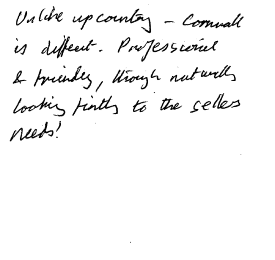 Unlike upcountry - Cornwall
is different. Professional
& friendly, though naturally
looking firstly to the sellers
needs!